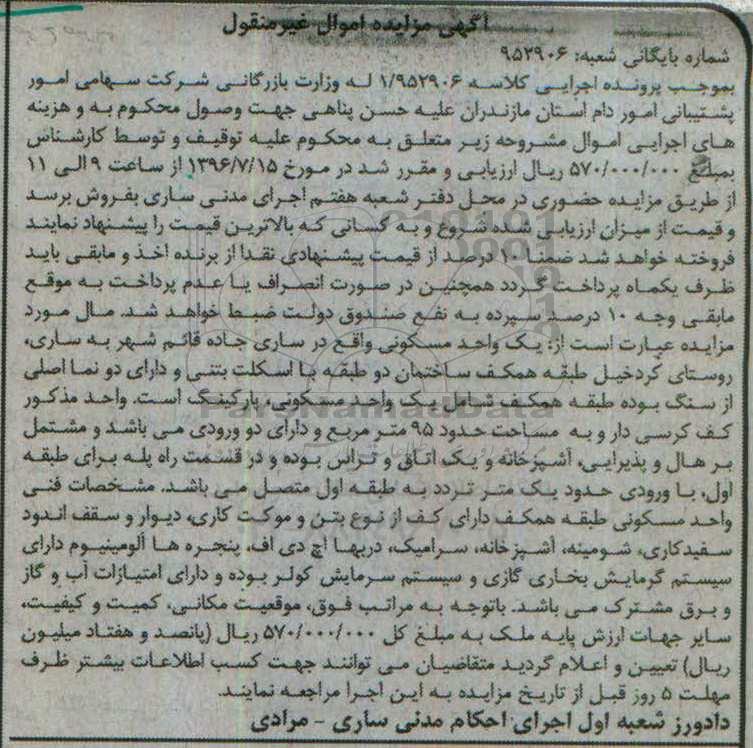 آگهی مزایده اموال غیرمنقول
شماره بایگانی شعبه: ۹۵۲۹۰۶
بموجب پرونده اجرایی کلاسه ۱/۹۵۲۹۰۶ له وزارت بازرگانی شرکت سهامی امور
پشتیبانی امور دام استان مازندران علیه حسن پناهی جهت وصول محکوم به و هزینه
های اجرایی اموال مشروحه زیر متعلق به محکوم علیه توقیف و توسط کارشناس
بمبلغ ۵۷۰/۰۰۰/۰۰۰ ریال ارزیابی و مقرر شد در مورخ ۱۳۹۶/۷/۱۵ از ساعت ۹ الی ۱۱
از طریق مزایده حضوری در محل دفتر شعبه هفتم اجرای مدنی ساری بفروش برسد
و قیمت از میزان ارزیابی شده شروع و به کسانی که بالاترین قیمت را پیشنهاد نمایند
فروخته خواهد شد ضمنا ۱۰ درصد از قیمت پیشنهادی نقدا از برنده اخذ و مابقی باید
ظرف یکماه پرداخت گردد همچنین در صورت انصراف یا عدم پرداخت به موقع
مابقی وجه ۱۰ درصد سپرده به نفع صندوق دولت ضبط خواهد شد. مال مورد
مزایده عبارت است از: یک واحد مسکونی واقع در ساری جاده قائم شهر به ساری،
روستای گردخیل طبقه همکف ساختمان دو طبقه با اسکلت بتنی و دارای دو نما اصلی
از سنگ بوده طبقه همکف شامل یک واحد مسکونی، پارکینگ است. واحد مذکور
کف کرسی دار و به مساحت حدود ۹۵ متر مربع و دارای دو ورودی می باشد و مشتمل
بر هال و پذیرایی، آشپزخانه و یک اتاق و تراس بوده و در قسمت راه پله برای طبقه
اول، با ورودی حدود یک متر تردد به طبقه اول متصل می باشد. مشخصات فنی
واحد مسکونی طبقه همکف دارای کف از نوع بتن و موکت کاری، دیوار و سقف اندود
سفیدکاری، شومینه، آشپزخانه، سرامیک، دربها اچ دی اف، پنجره ها آلومینیوم دارای
سیستم گرمایش بخاری گازی و سیستم سرمایش کولر بوده و دارای امتیازات آب و گاز
و برق مشترک می باشد. باتوجه به مراتب فوق، موقعیت مکانی، کمیت و کیفیت،
سایر جهات ارزش پایه ملک به مبلغ کل ۵۷۰/۰۰۰/۰۰۰ ریال (پانصد و هفتاد میلیون
ریال) تعیین و اعلام گردید متقاضیان می توانند جهت کسب اطلاعات بیشتر ظرف
مهلت ۵ روز قبل از تاریخ مزایده به این اجرا مراجعه نمایند.
دادورز شعبه اول اجرای احکام مدنی ساری - مرادی
ParsNamadData